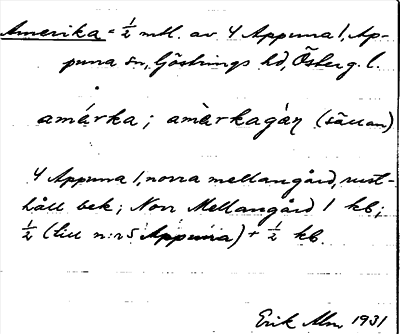 Amerika = ½ mtl. av 4 Appuna 1, Ap-
puna sn, Göstrings hd, Österg. l.
amárka; amàrkagàṇ (sällan)
4 Appuna 1, norra mellangård, rust-
håll bek; Norr Mellangård 1 kb;
½ (till n:r 5 Appuna) + ½ kb.
Erik Alm 1931